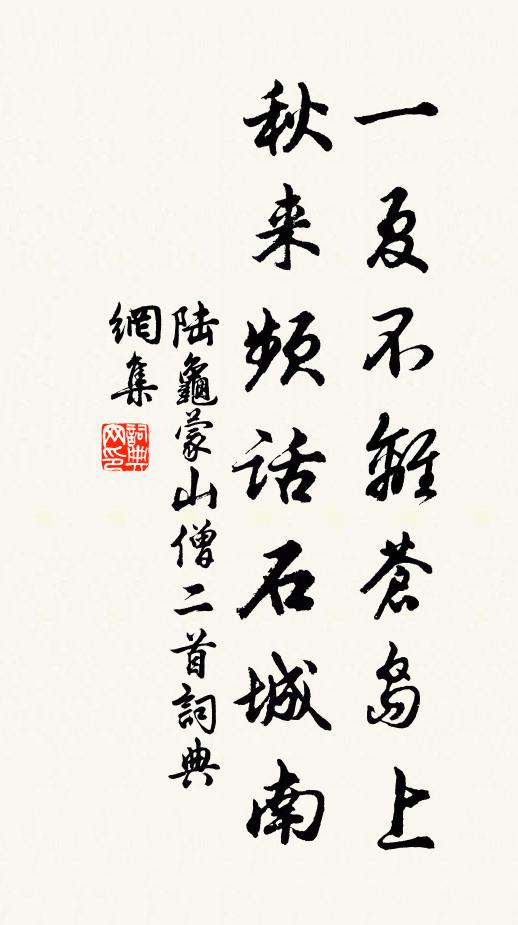 一夏不離蒼島上
秋来頻話石城南
陆龜蒙山僧二首詞典
網集
詞典
网印